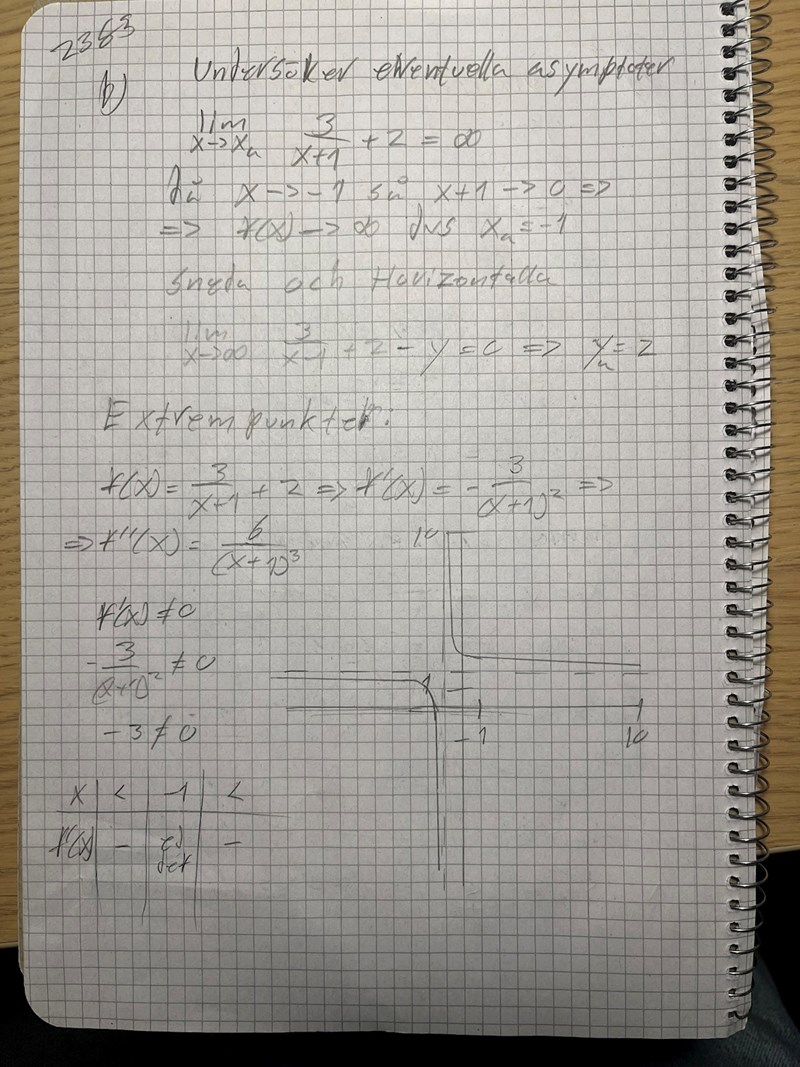 2383
b) Undersöker eventuella asymptoter
lim x->xₐ 3/(x+1) + 2 = ∞
då x->-1 så x+1 -> 0 =>
=> f(x) -> ∞ dvs xₐ = -1
Sneda och Horizontella
lim x->∞ 3/(x-1) + 2 - y = 0 => yₐ = 2
Extrempunkter:
f(x) = 3/(x+1) + 2 => f'(x) = - 3/(x+1)² =>
=> f''(x) = 6/(x+1)³
10
f'(x) ≠ 0
-3/(x+1)² ≠ 0
-3 ≠ 0
-1 10
x < -1 <
f'(x) - ej def -